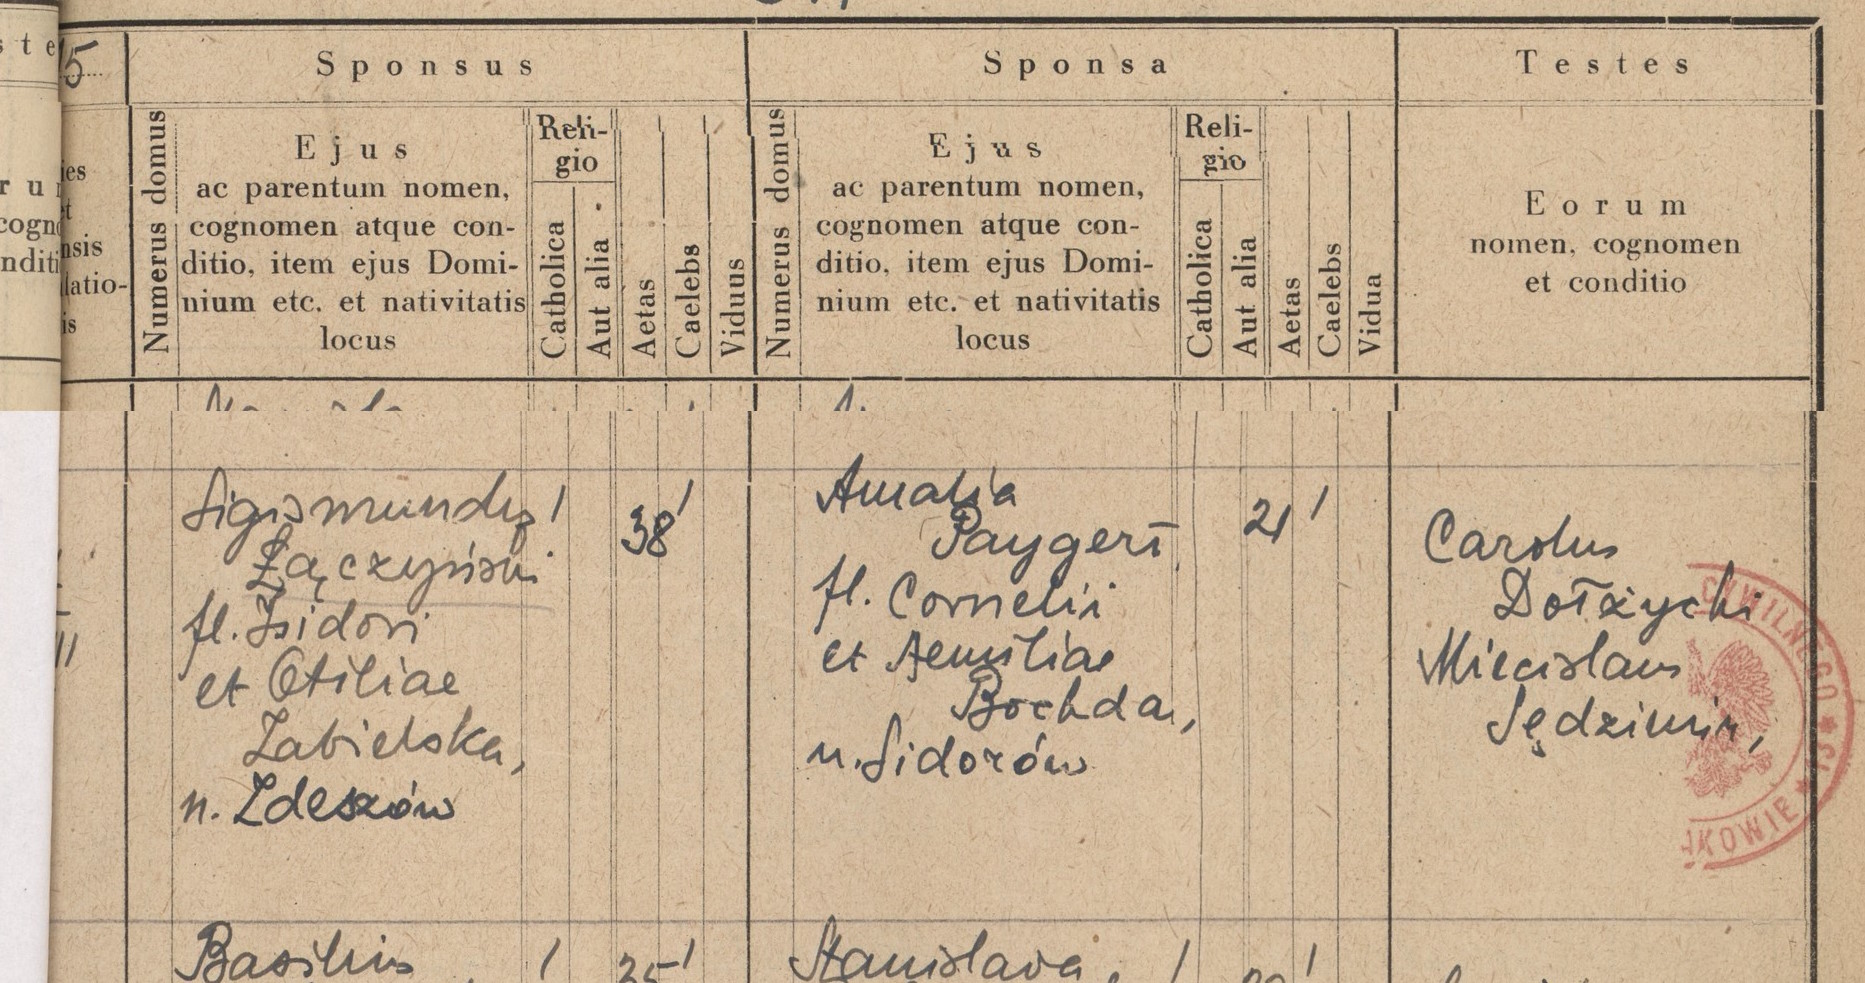 5
Sponsus
Sponsa
Testes
Numerus domus
Ejus
ac parentum nomen,
cognomen atque con-
ditio, item ejus Domi-
nium etc. et nativitatis
locus
Reli-
gio
Catholica
Aut alia
Aetas
Caelebs
Viduus
Numerus domus
Ejus
ac parentum nomen,
cognomen atque con-
ditio, item ejus Domi-
nium etc. et nativitatis
locus
Reli-
gio
Catholica
Aut alia
Aetas
Caelebs
Vidua
Eorum
nomen, cognomen
et conditio
Sigismundus
Łączyński
fl. Isidori
et Otiliae
Zabielska,
n. Zdeszów
1
38
1
Amalia
Paygert
fl. Cornelii
et Aemiliae
Bochda,
n. Sidorów
21
1
Carolus
Dołżycki
Miecislaus
Sędzimir,
CYWILNEGO
Basilius
1
35
1
Stanislava
1
1